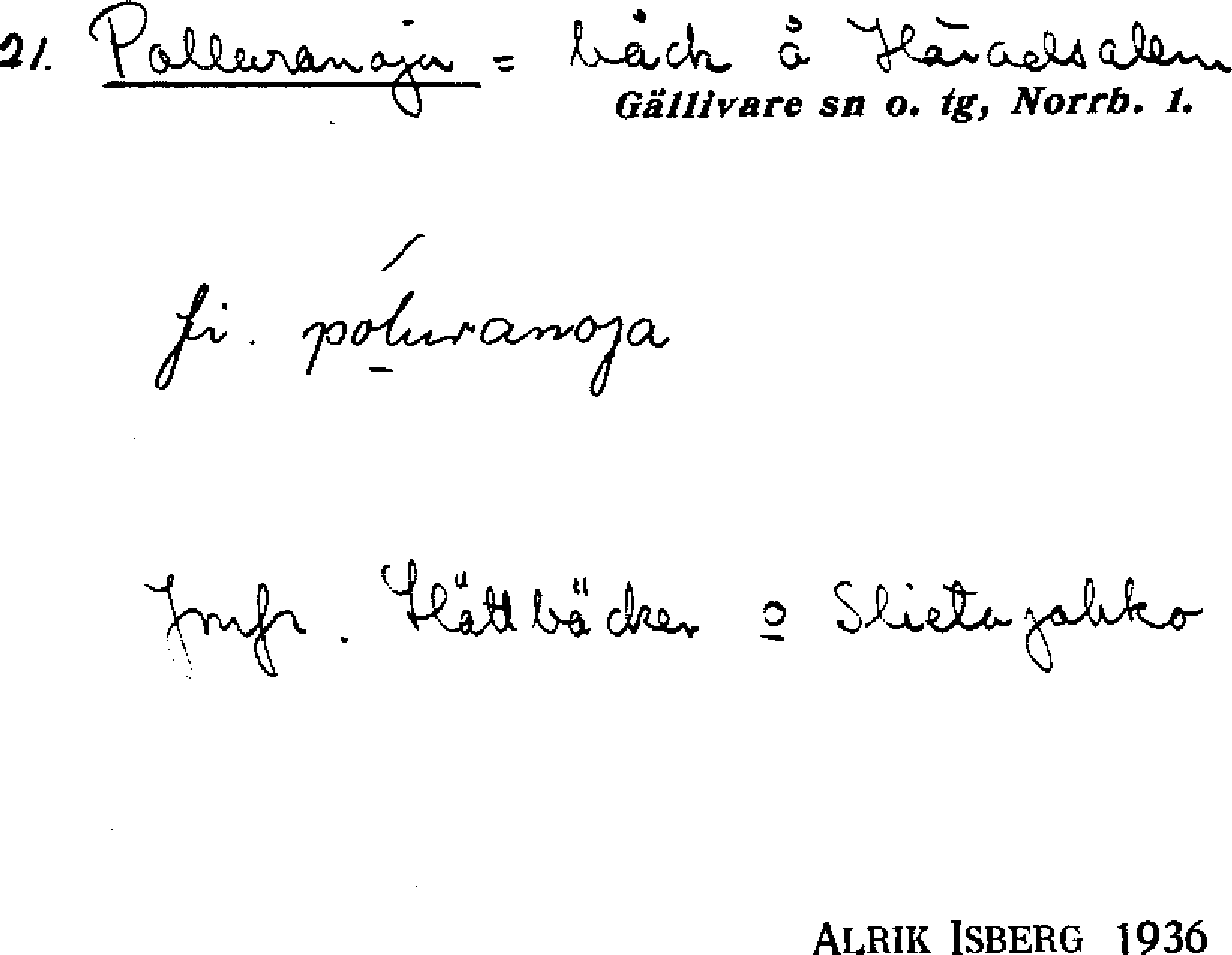 21. Palluranoja = bäck å Häradsallm
Gällivare sn o. tg, Norrb. 1.
fi. póluranoja
Jmfr. Slättbäcken o Slietajokko
ALRIK ISBERG 1936